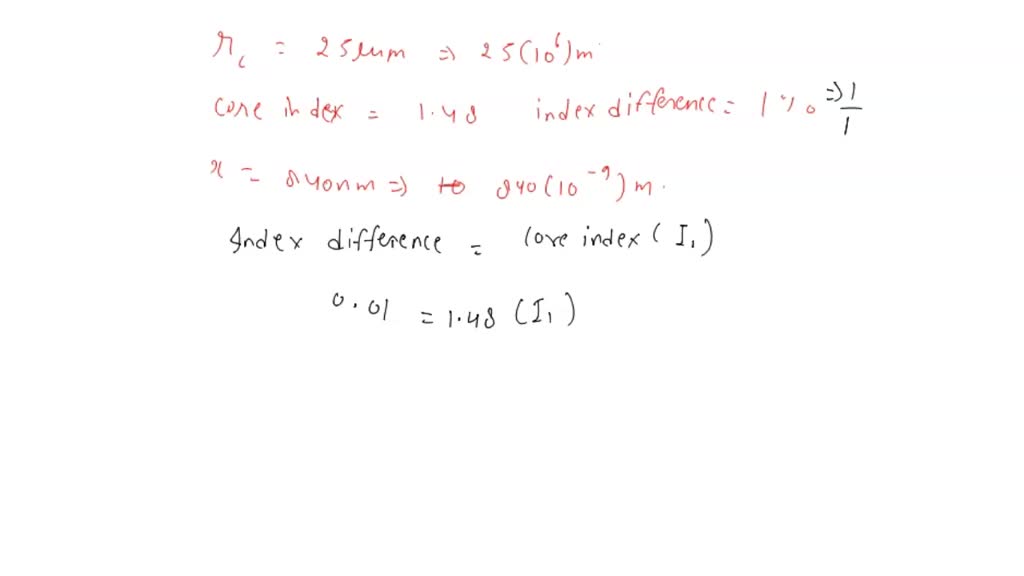 r_c = 25 μm ⇒ 25(10^6)m
core index = 1.48 index difference = 1 % ⇒ 1/1
x = 840nm ⇒ 840(10^-9)m.
Index difference = core index ( I_1 )
0.01 = 1.48 (I_1 )